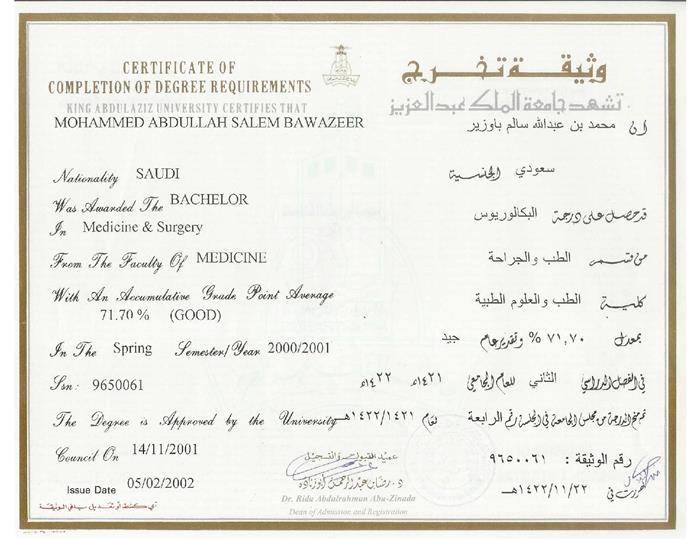 CERTIFICATE OF
COMPLETION OF DEGREE REQUIREMENTS
KING ABDULAZIZ UNIVERSITY CERTIFIES THAT
MOHAMMED ABDULLAH SALEM BAWAZEER
Nationality SAUDI
Was Awarded The BACHELOR
In Medicine & Surgery
From The Faculty Of MEDICINE
With An Accumulative Grade Point Average
71.70 % (GOOD)
In The Spring Semester/Year 2000/2001
Ssn: 9650061
The Degree is Approved by the University
Council On 14/11/2001
Issue Date 05/02/2002
وثيقة تخرج
تشهد جامعة الملك عبدالعزيز
ان محمد بن عبدالله سالم باوزير
سعودي الجنسية
قد حصل على درجة البكالوريوس
من قسم الطب والجراحة
كلية الطب والعلوم الطبية
بمعدل ٧١,٧٠ % وتقدير عام جيد
في الفصل الدراسي الثاني للعام الجامعي ١٤٢١هـ ١٤٢٢هـ
تم منح الدرجة من مجلس الجامعة في الجلسة رقم الرابعة لعام ١٤٢٢/١٤٢١هـ
رقم الوثيقة : ٩٦٥٠٠٦١
حررت في ١٤٢٢/١١/٢٢هـ
عميد القبول والتسجيل
د. رضا بن عبدالرحمن ابوزنادة
Dr. Rida Abdalrahman Abu-Zinada
Dean of Admission and Registration
أي كشط أو تعديل يلغي الوثيقة